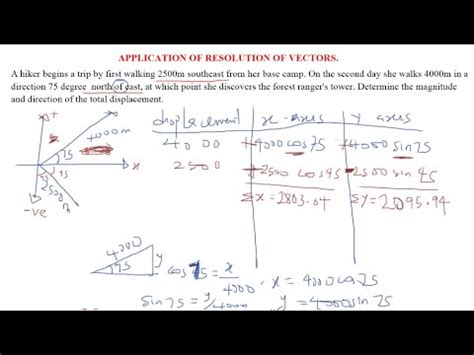 APPLICATION OF RESOLUTION OF VECTORS.
A hiker begins a trip by first walking 2500m southeast from her base camp. On the second day she walks 4000m in a
direction 75 degree north of east, at which point she discovers the forest ranger's tower. Determine the magnitude
and direction of the total displacement.
displacement x-axes y axes
4000 +4000cos75 +4000 sin75
2500 +2500 cos45 -2500 sin 45
Σx = 2803.04 Σy = 2095.94
+
4000m
75
x
45
-ve
2500m
4000
75
y
cos75 = x/4000 x = 4000cos75
sin75 = y/4000 y = 4000sin75